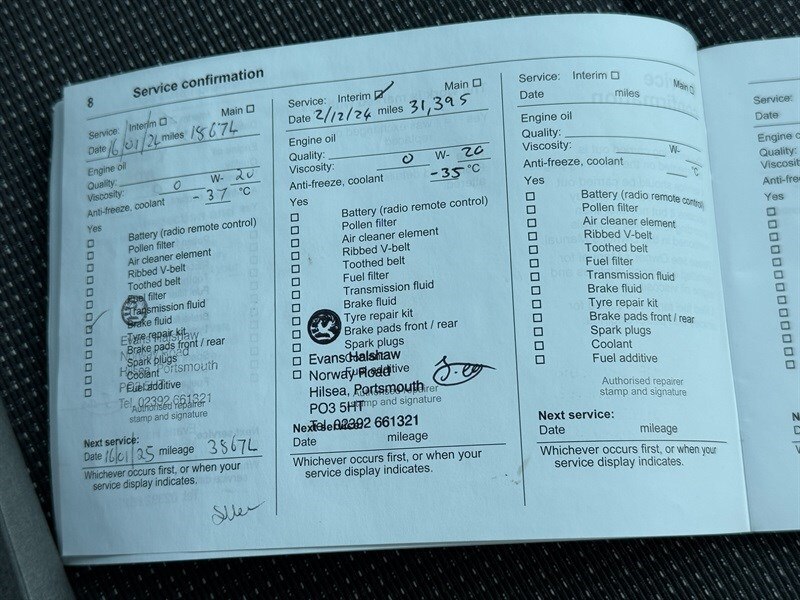 8 Service confirmation
Service: Interim ☐ Main ☐
Date 16/01/24 miles 18672
Engine oil
Quality:
Viscosity: 0 W- 20
Anti-freeze, coolant -37 °C
Yes
☐ Battery (radio remote control)
☐ Pollen filter
☐ Air cleaner element
☐ Ribbed V-belt
☐ Toothed belt
☐ Fuel filter
☐ Transmission fluid
☐ Brake fluid
☐ Tyre repair kit
☐ Brake pads front / rear
☐ Spark plugs
☐ Coolant
☐ Fuel additive
Evans Halshaw
Norway Road
Hilsea, Portsmouth
PO3 5HT
Tel. 02392 661321
Authorised repairer
stamp and signature
Next service:
Date 16/01/25 mileage 38672
Whichever occurs first, or when your
service display indicates.
Service: Interim ☑ Main ☐
Date 2/12/24 miles 31,395
Engine oil
Quality:
Viscosity: 0 W- 20
Anti-freeze, coolant -35 °C
Yes
☐ Battery (radio remote control)
☐ Pollen filter
☐ Air cleaner element
☐ Ribbed V-belt
☐ Toothed belt
☐ Fuel filter
☐ Transmission fluid
☐ Brake fluid
☐ Tyre repair kit
☐ Brake pads front / rear
☐ Spark plugs
☐ Coolant
☐ Fuel additive
Evans Halshaw
Norway Road
Hilsea, Portsmouth
PO3 5HT
Tel. 02392 661321
Authorised repairer
stamp and signature
Next service:
Date mileage
Whichever occurs first, or when your
service display indicates.
Service: Interim ☐ Main ☐
Date miles
Engine oil
Quality:
Viscosity: W-
Anti-freeze, coolant °C
Yes
☐ Battery (radio remote control)
☐ Pollen filter
☐ Air cleaner element
☐ Ribbed V-belt
☐ Toothed belt
☐ Fuel filter
☐ Transmission fluid
☐ Brake fluid
☐ Tyre repair kit
☐ Brake pads front / rear
☐ Spark plugs
☐ Coolant
☐ Fuel additive
Authorised repairer
stamp and signature
Next service:
Date mileage
Whichever occurs first, or when your
service display indicates.
Service:
Date
Engine
Quality:
Viscosity:
Yes